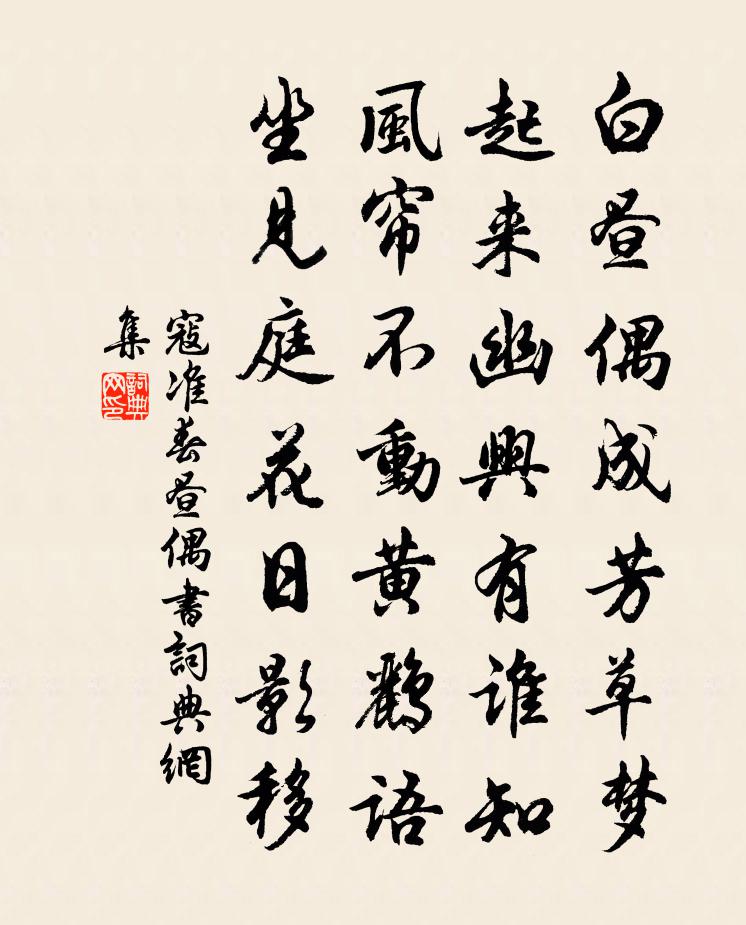 白昼偶成芳草梦
起来幽興有谁知
風帘不動黄鸝語
坐見庭花日影移
寇准春昼偶書詞典網
集
詞典
网印